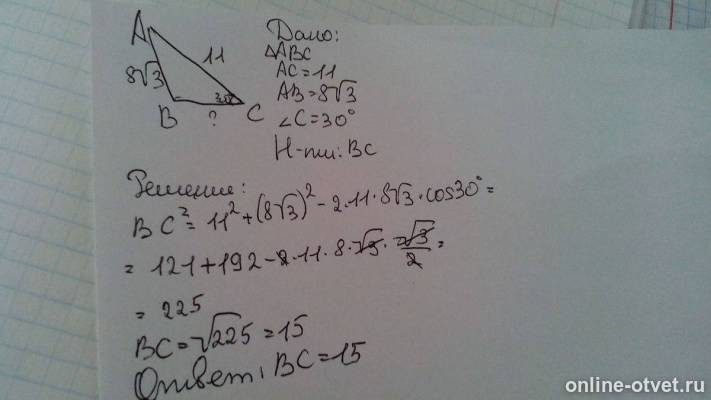 A
11
8√3
30°
B
?
C
Дано:
△ABC
AC=11
AB=8√3
∠C=30°
Н-ти: BC
Решение:
BC²=11²+(8√3)²-2·11·8√3·cos30°=
=121+192-2·11·8·√3·√3/2=
=225
BC=√225=15
Ответ: BC=15
online-otvet.ru